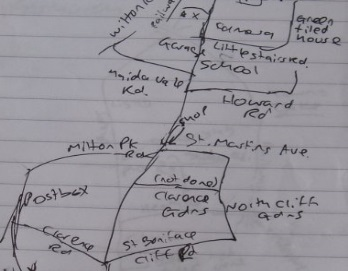 Wilton
Railway
Camera
green
tiled
house
Garage
Littlestairs rd.
School
Maida Vale
Rd.
Howard
Rd
Milton Pk
Rd.
St. Martins Ave.
(not done)
Clarence
Gdns
North Cliff
Gdns
Postbox
Clarence
Rd
St Boniface
Cliff Rd